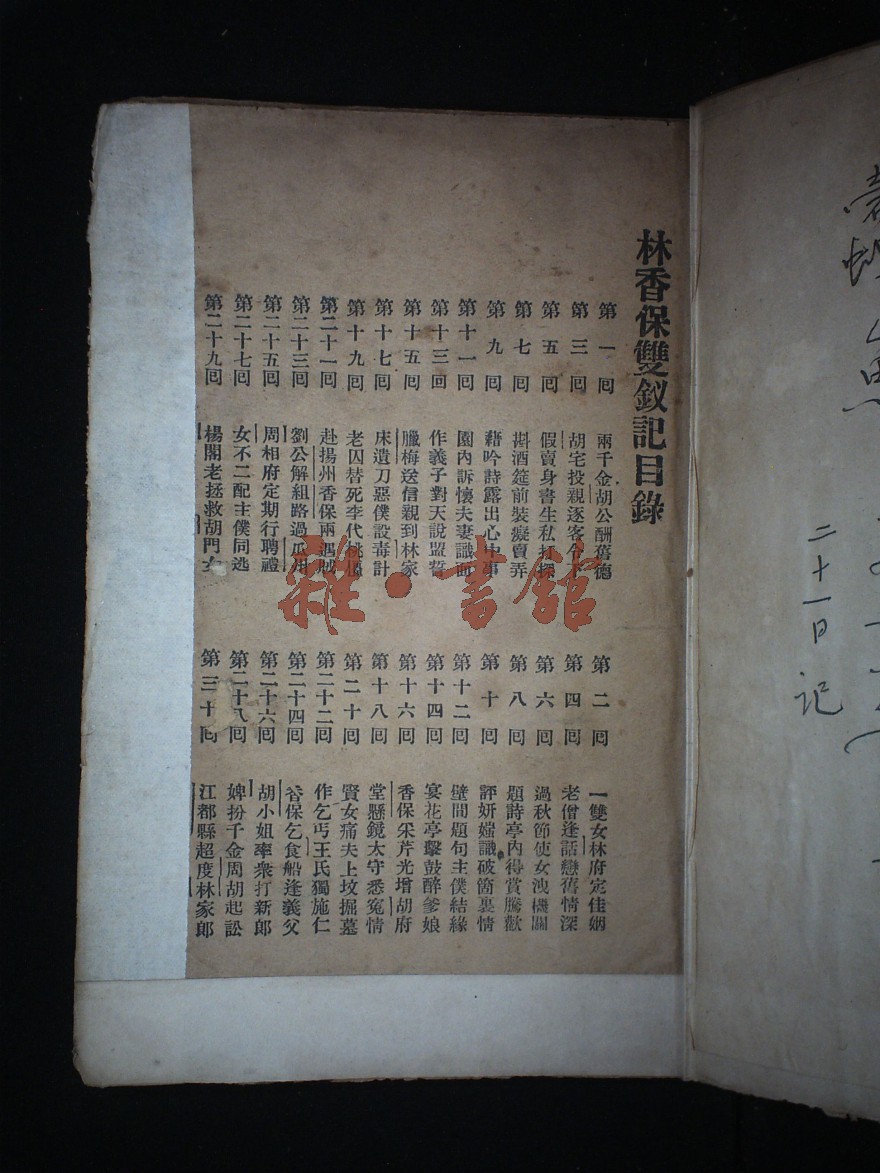 林香保雙釵記目錄
第一回 兩千金胡公酬舊德
第三回 胡宅投親逐客令下
第五回 假賣身書生私打探
第七回 斟酒筵前裝癡賣弄
第九回 藉吟詩露出心中事
第十一回 園內訴懷夫妻識面
第十三回 作義子對天說盟誓
第十五回 臘梅送信親到林家
第十七回 床遺刀惡僕設毒計
第十九回 老囚替死李代桃僵
第二十一回 赴揚州香保兩遇賊
第二十三回 劉公解組路過瓜州
第二十五回 周相府定期行聘禮
第二十七回 女不二配主僕同逃
第二十九回 楊閣老拯救胡門女
第二回 一雙女林府定佳姻
第四回 老僧逢話戀舊情深
第六回 過秋節使女洩機關
第八回 題詩亭內得賞騰歡
第十回 評妍媸識破箇裏情
第十二回 壁間題句主僕結緣
第十四回 宴花亭擊鼓醉爹娘
第十六回 香保采芹光增胡府
第十八回 堂懸鏡太守悉冤情
第二十回 賢女痛夫上坟掘墓
第二十二回 作乞丐王氏獨施仁
第二十四回 香保乞食船逢義父
第二十六回 胡小姐率衆打新郎
第二十八回 婢扮千金周胡起訟
第三十回 江都縣超度林家郎
雜·書館
二十一日
记